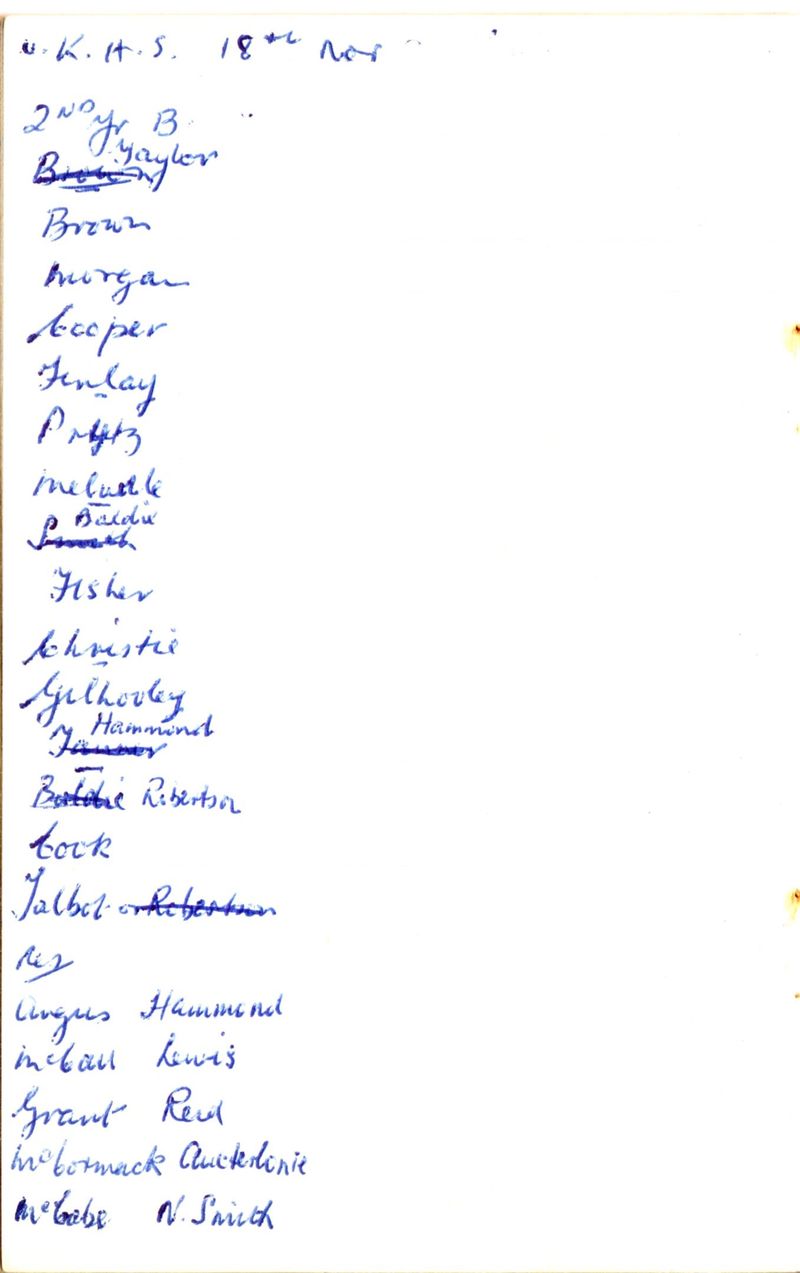 v. K. H. S. 18th Nov
2ND Yr B
Brown Taylor
Brown
Morgan
Cooper
Finlay
Prytz
Baldie
Smith
Fisher
Christie
Gilhooley
Hammond
Tanner
Baldie Robertson
Cook
Talbot or Robertson
Res
Angus Hammond
McCall Lewis
Grant Reid
McCormack Auchterlonie
McCabe N. Smith